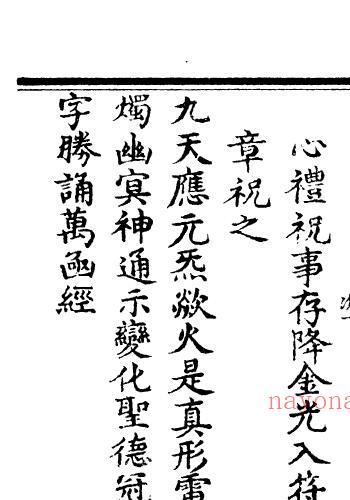 心禮祝事存降金光入符
章祝之
九天應元炁歘火是真形雷
燭幽冥神通示變化聖德冠
字勝誦萬函經
nayona